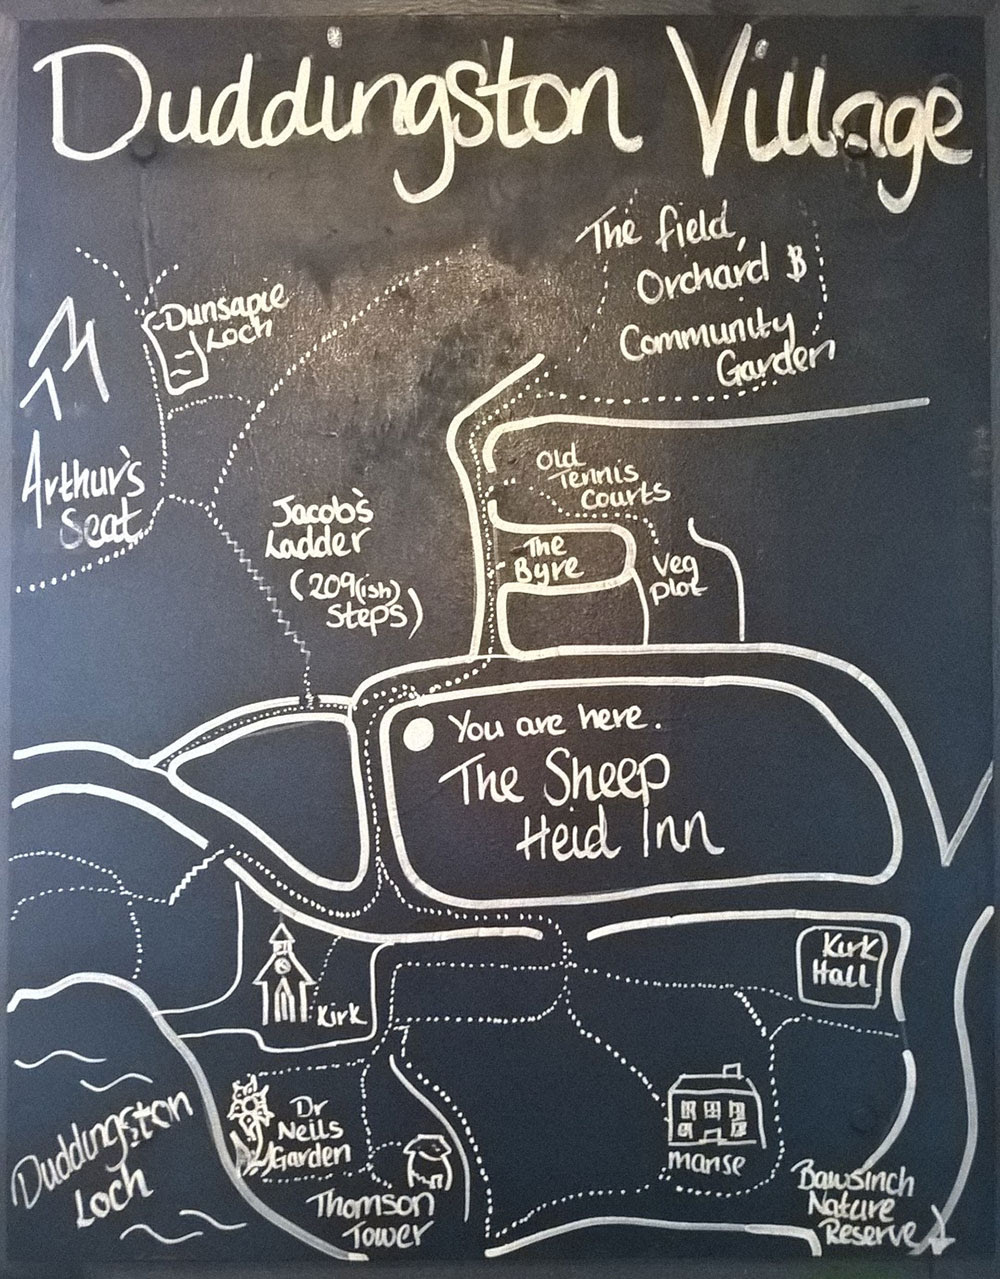 Duddingston Village
The field,
Orchard &
Community
Garden
Dunsapie
Loch
Arthur's
Seat
Old
Tennis
Courts
Jacob's
Ladder
(209(ish)
Steps)
The
Byre
Veg
plot
You are here.
The Sheep
Heid Inn
Kirk
Hall
Kirk
Dr
Neils
Garden
Manse
Duddingston
Loch
Thomson
Tower
Bawsinch
Nature
Reserve